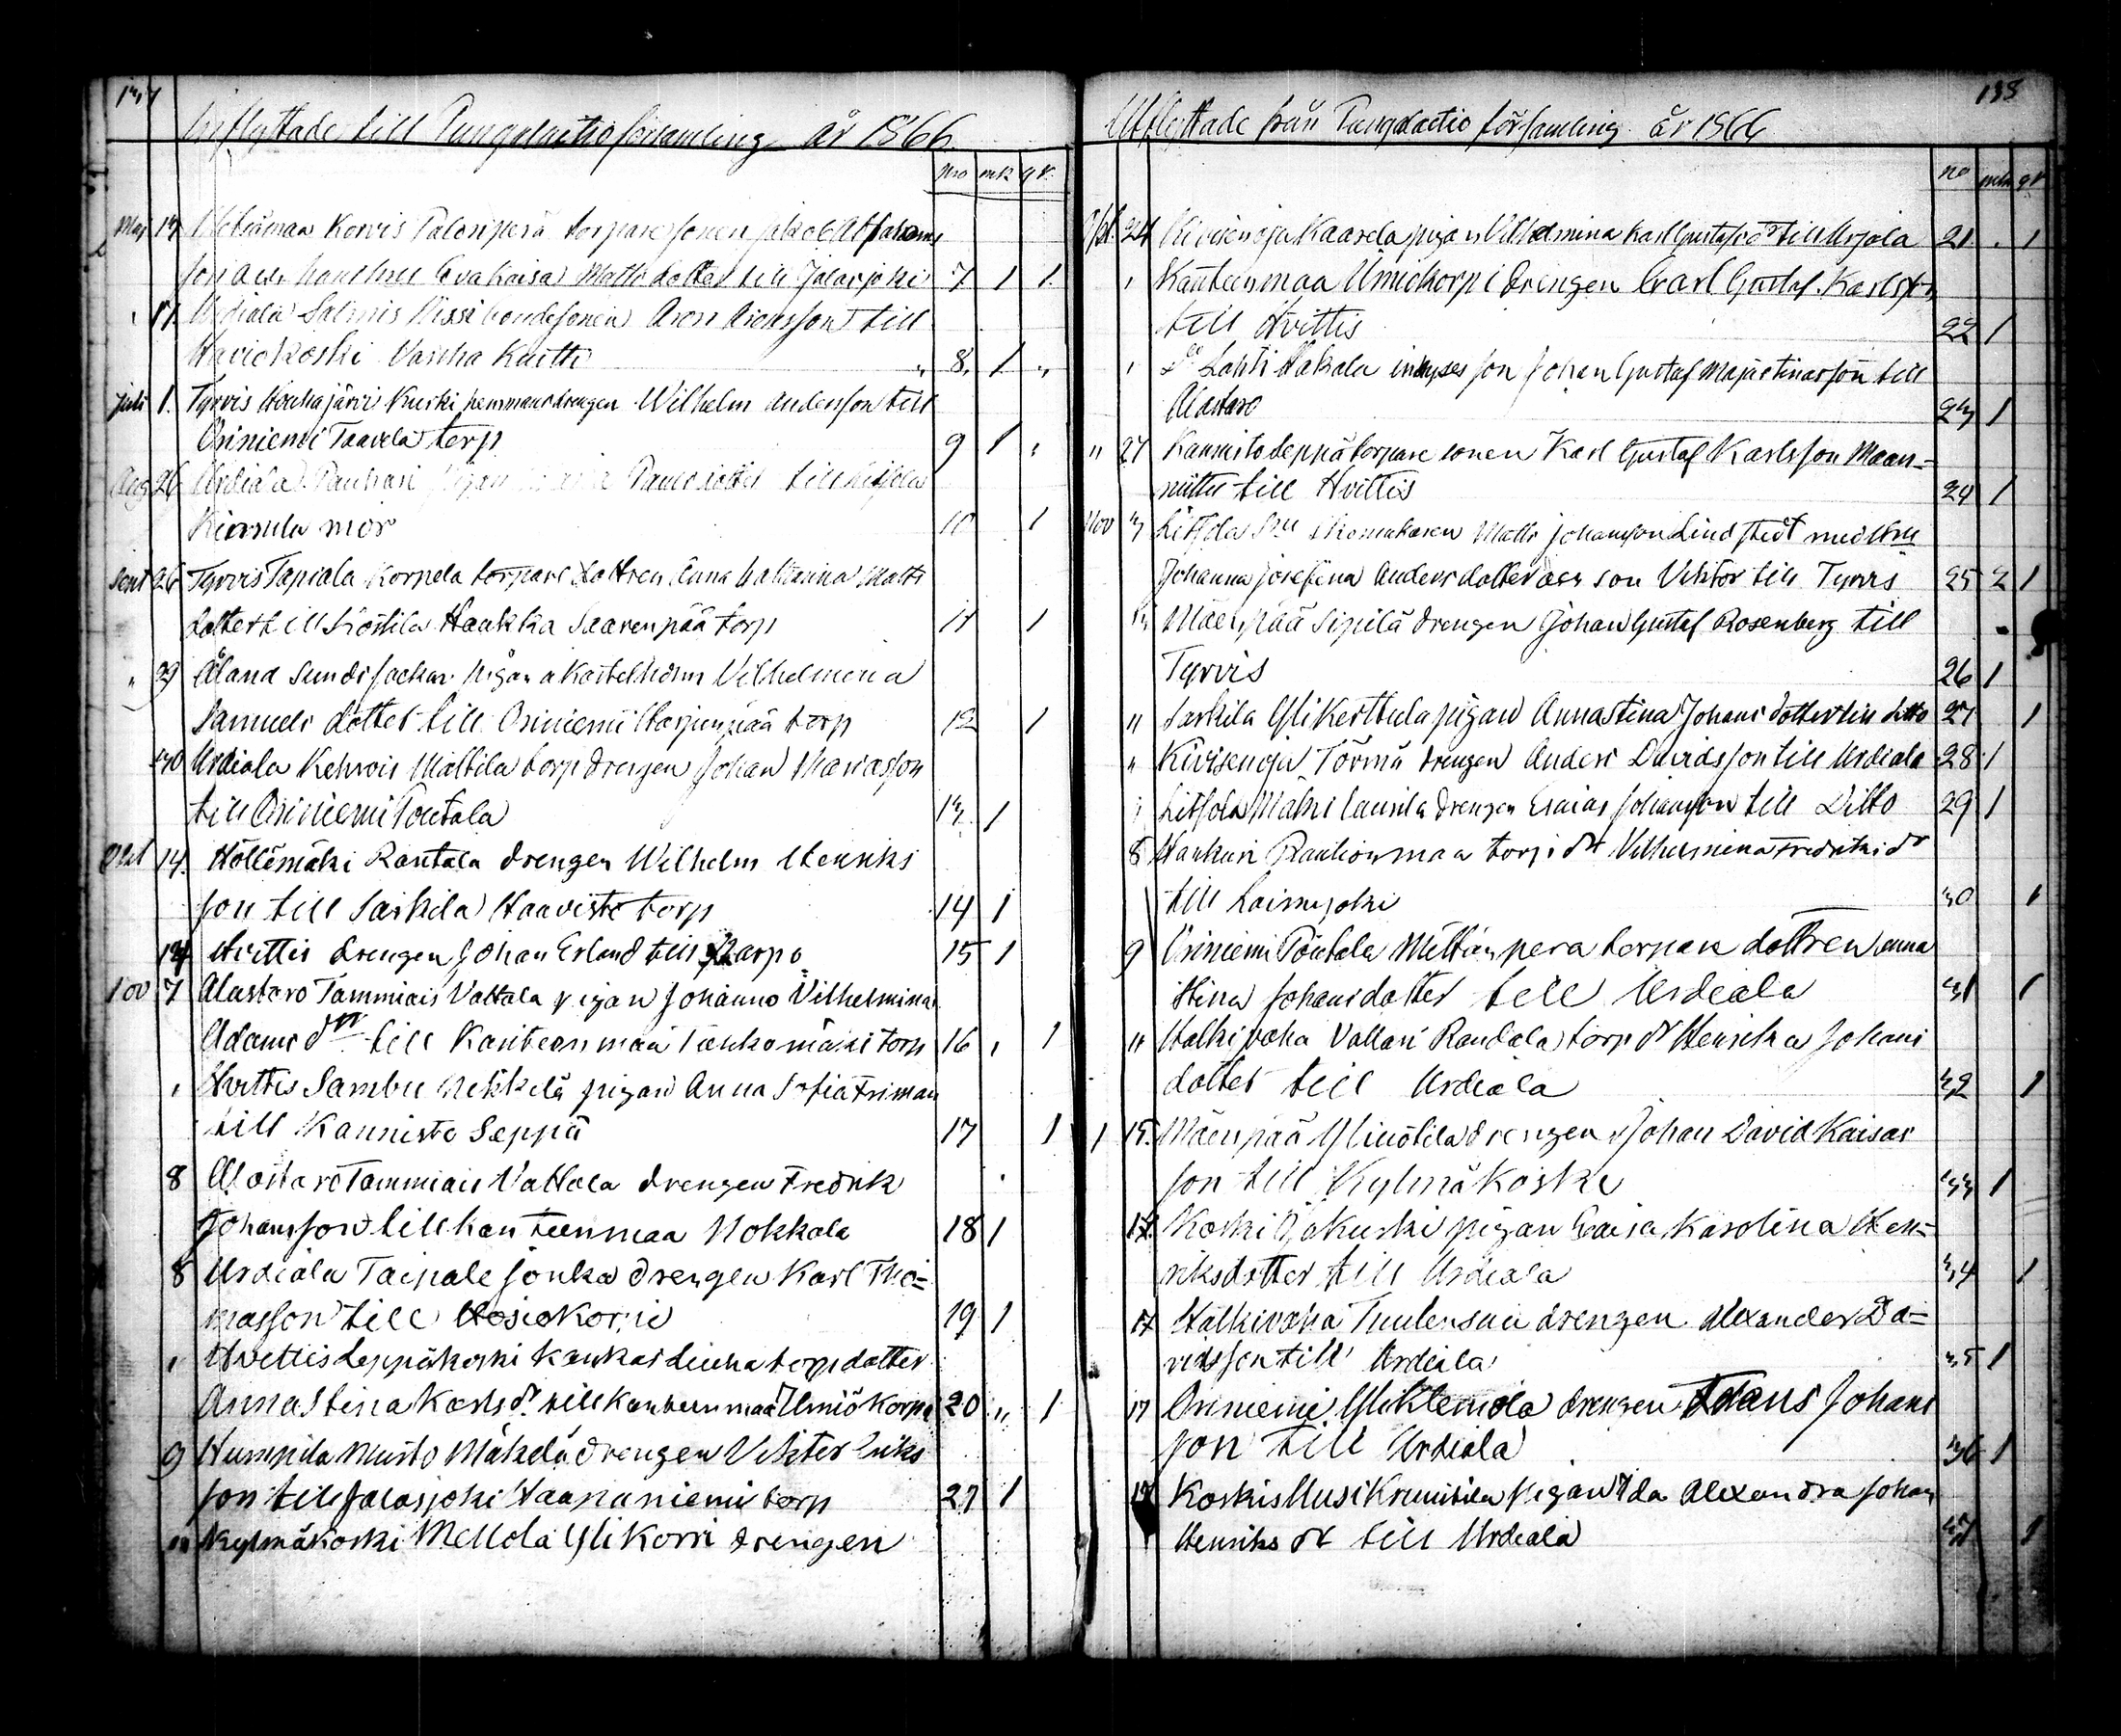 137
Inflyttade till Pungalaitio församling år 1866.
Nro mk qk.
Maj 13 Korvis Palonperä torpare sonen Jakob Abrahams
son och hustru Eva Kaisa Matts dotter till Jalasjoki 7 1 1
" 17 Urdiala Salmis Nissi bondesonen Aron Aronsson till
Haviokoski Vanha Kaitti " 8. 1 "
Juli 1. Tyrvis Houhajärvi Kurki hemmansdrengen Wilhelm Andersson till
Oriniemi Taavela torp 9 1 "
Aug 26 Urdiala Pauls dotter till Liitsola
Kiersula mor 10 1
Sept 26 Tyrvis Tapiala Korpela torpare dottren Anna Matts
dotter till Sorkila Haukka Saarenpää torp 11 1
" 29 Åland Sunds socken pigan a Kastelholm Vilhelmina
Samuels dotter till Oriniemi Harjunpää torp 12 1
30 Urdiala Kehrois Mattila torp drengen Johan Mariasson
till Oriniemi Poutala 13. 1
Okt 14. Höllömäki Rantala drengen Wilhelm Henriks
son till Sarkila Haavisto torp 14 1
14 Hvittis drengen Johan Erland till Karpo 15 1
Nov 7 Alastaro Tammiais Vattala pigan Johanna Vilhelmina
Adams dtr till Kanteenmaa torp 16 " 1
" Hvittis Sambu Nekkelä pigan Anna Sofia Friman
till Kannisto Seppä 17 1
8 Alastaro Tammiais Vattala drengen Fredrik
Johansson till Kanteenmaa Nokkala 18 1
8 Urdiala Taipale Jonka drengen Karl Tho=
masson till Hosiokorpi 19 1
" Hvittis Leppäkoski Kaukas Leuha torpdotter
Anna Stina Karls dr till Kanteenmaa Umiö Korpi 20 " 1
9 Humpila Murto Mäkelä drengen Vihter Eriks
son till Jalasjoki Haananiemi torp 21 1
" Kylmäkoski Mellola Yli Korri drengen
138
Utflyttade från Pungalaitio församling år 1866
no mk qk
Sept. 24 Kivisenoja Kaarela pigan Vilhelmina Karl Gustafs dr till Urjala 21 . 1
" Kanteenmaa Umiökorpi drengen Carl Gustaf Karlsson
till Hvittis 22 1
" Do Lahti Hakala inhyses son Johan Gustaf Majastinasson till
Alastaro 23 1
" 27 Kannisto Seppä torpare sonen Karl Gustaf Karlsson Maan=
nittu till Hvittis 24 1
Nov 3 Liitsola skomakaren Matts Johansson Lindstedt med hru
Johanna Josefina Anders dotter och son Viktor till Tyrvis 25 2 1
Mäenpää Sipilä drengen Johan Gustaf Rosenberg till
Tyrvis 26 1
" Sarkila Ylikerttula pigan Anna Stina Johans dotter till ditto 27 1
" Kivisenoja Törmä drengen Anders Davidsson till Urdiala 28 1
" Liitsola Matti Laurila drengen Esaias Johansson till Ditto 29 1
8 Hankuri Rautionmaa torp dt Vilhelmina Fredriks dr
till Loimijoki 30 1
9 Oriniemi Poutala Mettänperä torpare dottren Anna
Stina Johans dotter till Urdiala 31 1
" Halkivaha Vallari Randala torp dr Henrika Johans
dotter till Urdiala 32 1
15. Mäenpää Ylinötila drengen Johan David Kaisas
son till Kylmäkoski 33 1
17. Koski Ojakurki pigan Caisa Karolina Hen=
riksdotter till Urdiala 34 1
17 Halkivaha Tuulensuu drengen Alexander Da=
vidsson till Urdiala 35 1
17 Oriniemi Yliklemola drengen Johans
son till Urdiala 36 1
18 Koskis Uusi Krunitila pigan Ida Alexandra Johan
Henriks dt till Urdiala 37 1